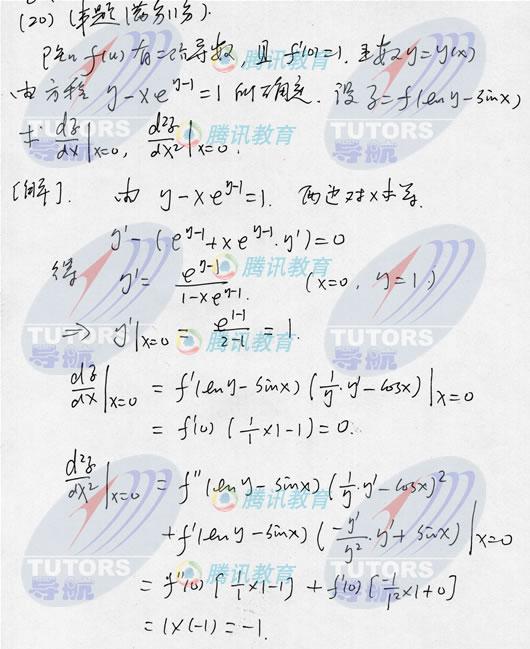 (20) (本题满分11分).
已知 f(u) 有二阶导数, 且 f'(0)=1, 函数 y=y(x)
由方程 y-xe^{y-1}=1 所确定. 设 z=f(lny-sinx)
求 dz/dx|_{x=0}, d²z/dx²|_{x=0}.
[解]. 由 y-xe^{y-1}=1. 两边对x求导.
y'-(e^{y-1}+xe^{y-1}·y')=0
得 y'= e^{y-1}/(1-xe^{y-1}). (x=0, y=1.)
⇒ y'|_{x=0} = e^{1-1}/(2-1) = 1.
dz/dx|_{x=0} = f'(lny-sinx)(1/y·y'-cosx)|_{x=0}
= f'(0)(1/1×1-1)=0.
d²z/dx²|_{x=0} = f''(lny-sinx)(1/y·y'-cosx)²
+f'(lny-sinx)(-y'/y²·y'+sinx)|_{x=0}
= f''(0)[1/1×1-1]+f'(0)[-1/1²×1+0]
=1×(-1)=-1.
腾讯教育
TUTORS
导航